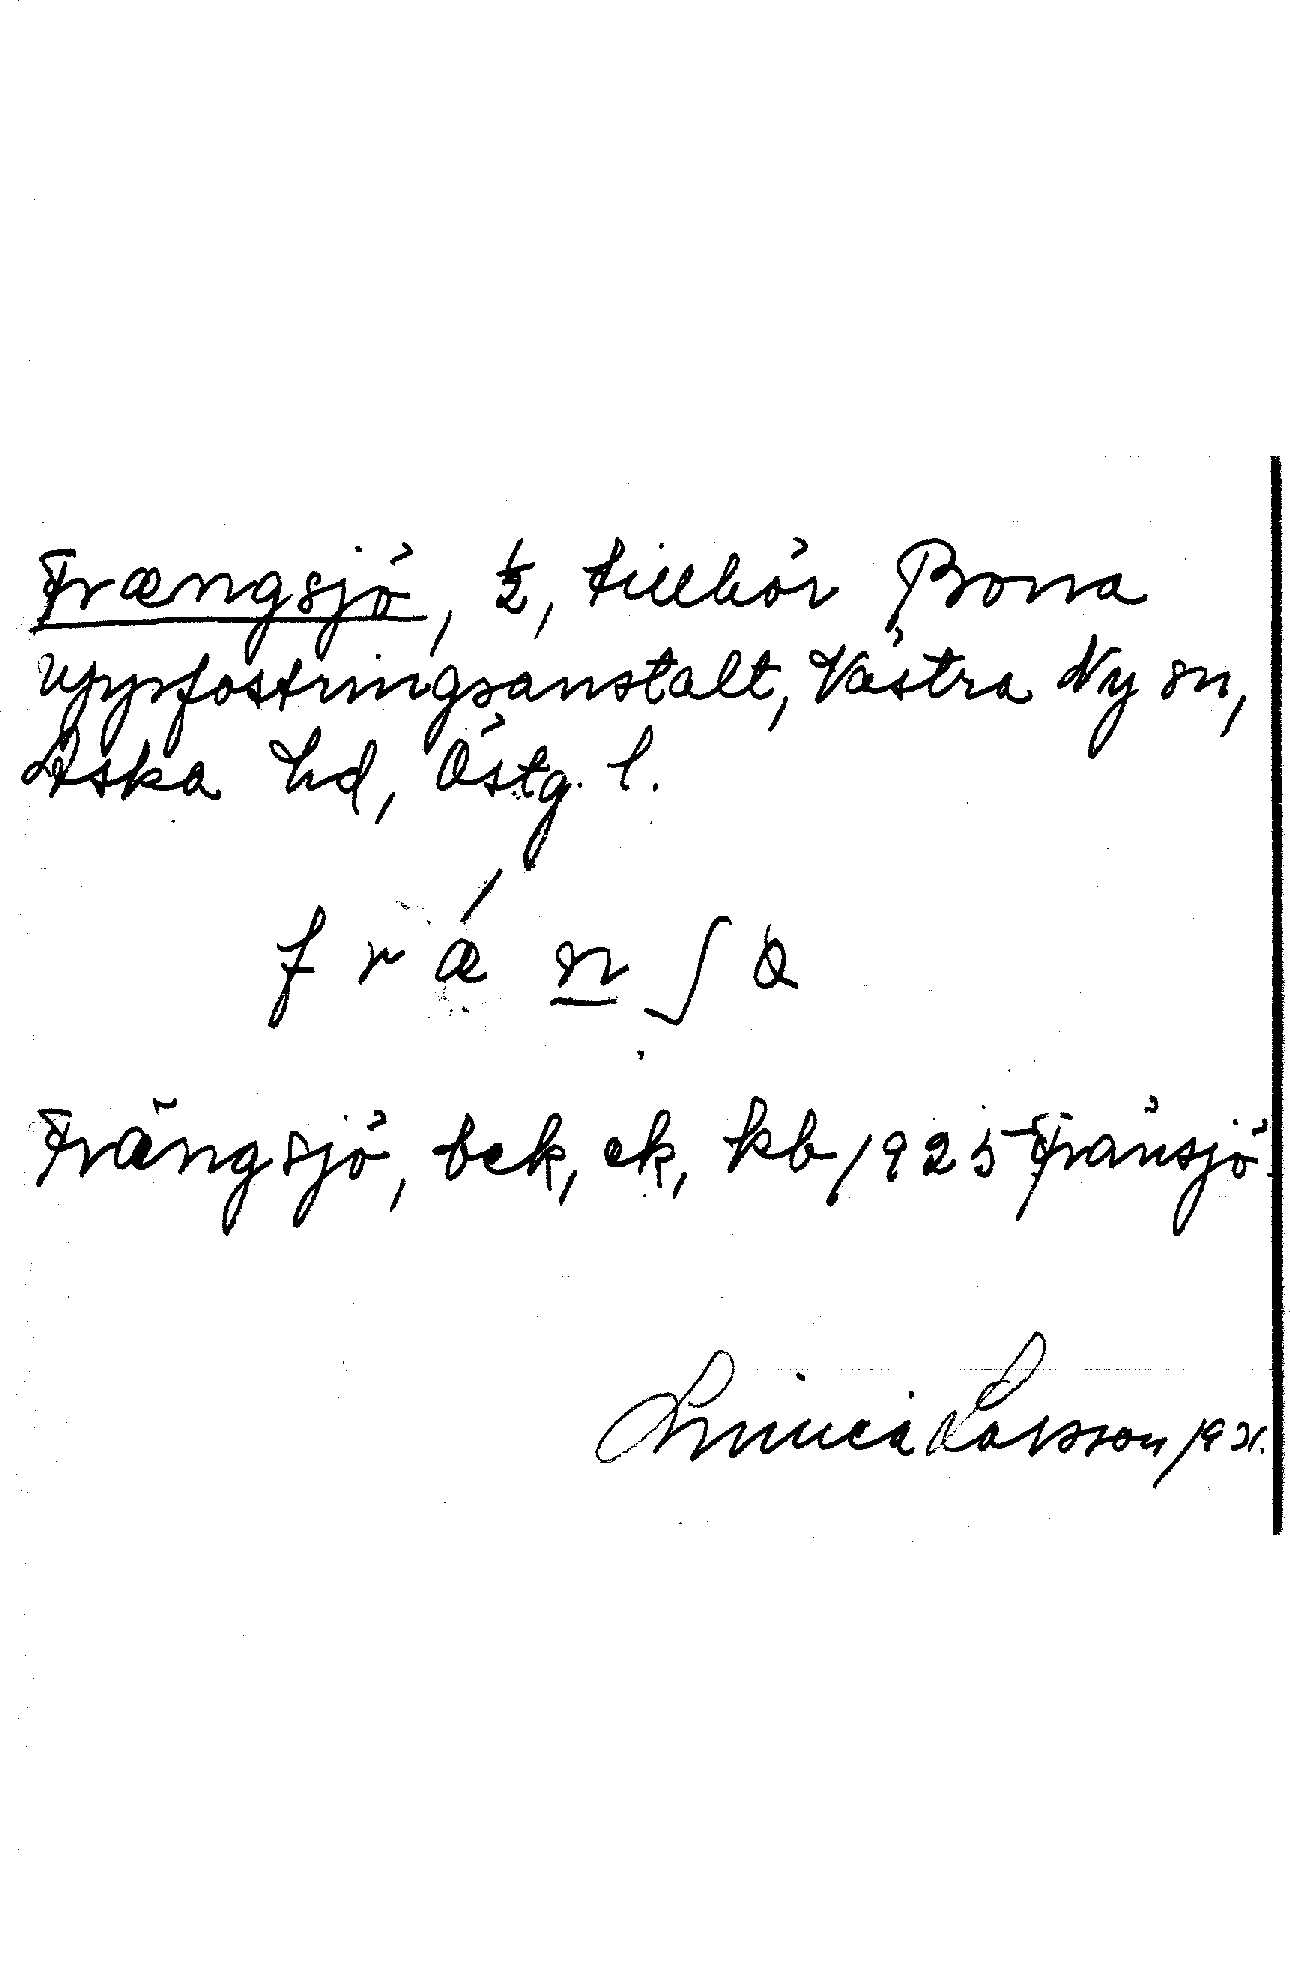 Frængsjö, 1/2, tillhör Bona
uppfostringsanstalt, Västra Ny sn,
Aska hd, Östg. l.
f r ǽ n ʃ ø
Frängsjö, bek, ek, kb 1925 Fränsjö
Linnea Larsson 19